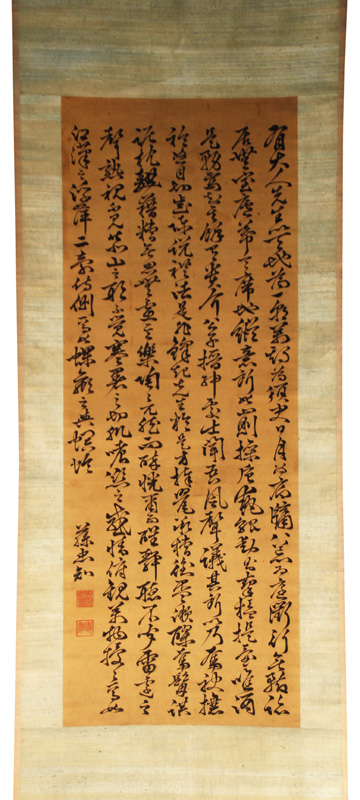 有大人先生以天地為一朝萬期為須臾日月為扃牖八荒為庭衢行無轍跡
居無室廬幕天席地縱意所如止則操巵執觚動則挈榼提壺唯酒
是務焉知其餘有貴介公子搢紳處士聞吾風聲議其所以乃奮袂攘
衿怒目切齒陳說禮法是非鋒起先生於是方捧甖承槽銜杯漱醪奮髯踑
踞枕麴藉糟無思無慮其樂陶陶兀然而醉恍爾而醒靜聽不聞雷霆之
聲熟視不見泰山之形不覺寒暑之切肌嗜慾之感情俯觀萬物擾擾焉如
江漢之浮萍二豪侍側焉如蜾蠃之與螟蛉
藤忠知